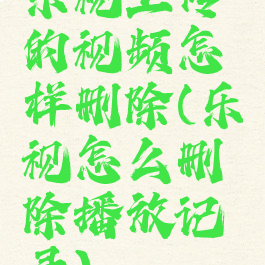 乐视上传
的视频怎
样删除(乐
视怎么删
除播放记
录)